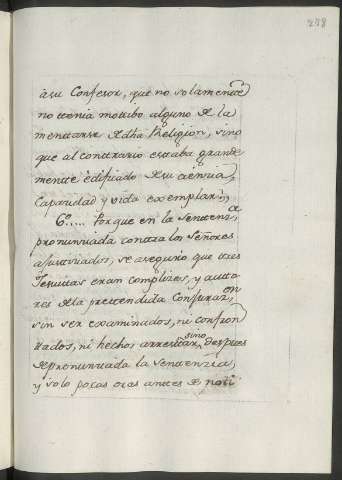 278
à su Confesor, que no solamente
no tenia motibo alguno de la
mentarse de dha Religion, sino
que al conttrario estaba grande
mentte edificado de su ciencia,
Capazidad y vida exemplar.
6º..... Porque en la Senttenª
pronunciada conttra los Señores
ajusticiados, se aseguro que ttres
Jesuitas eran complizes, y autto
res de la prettendida Conjurazon
sin ser examinados, ni confron
ttados, ni hechos arrestar, sino despues
de pronunciada la Sentenzia,
y solo pocas oras antes de noti